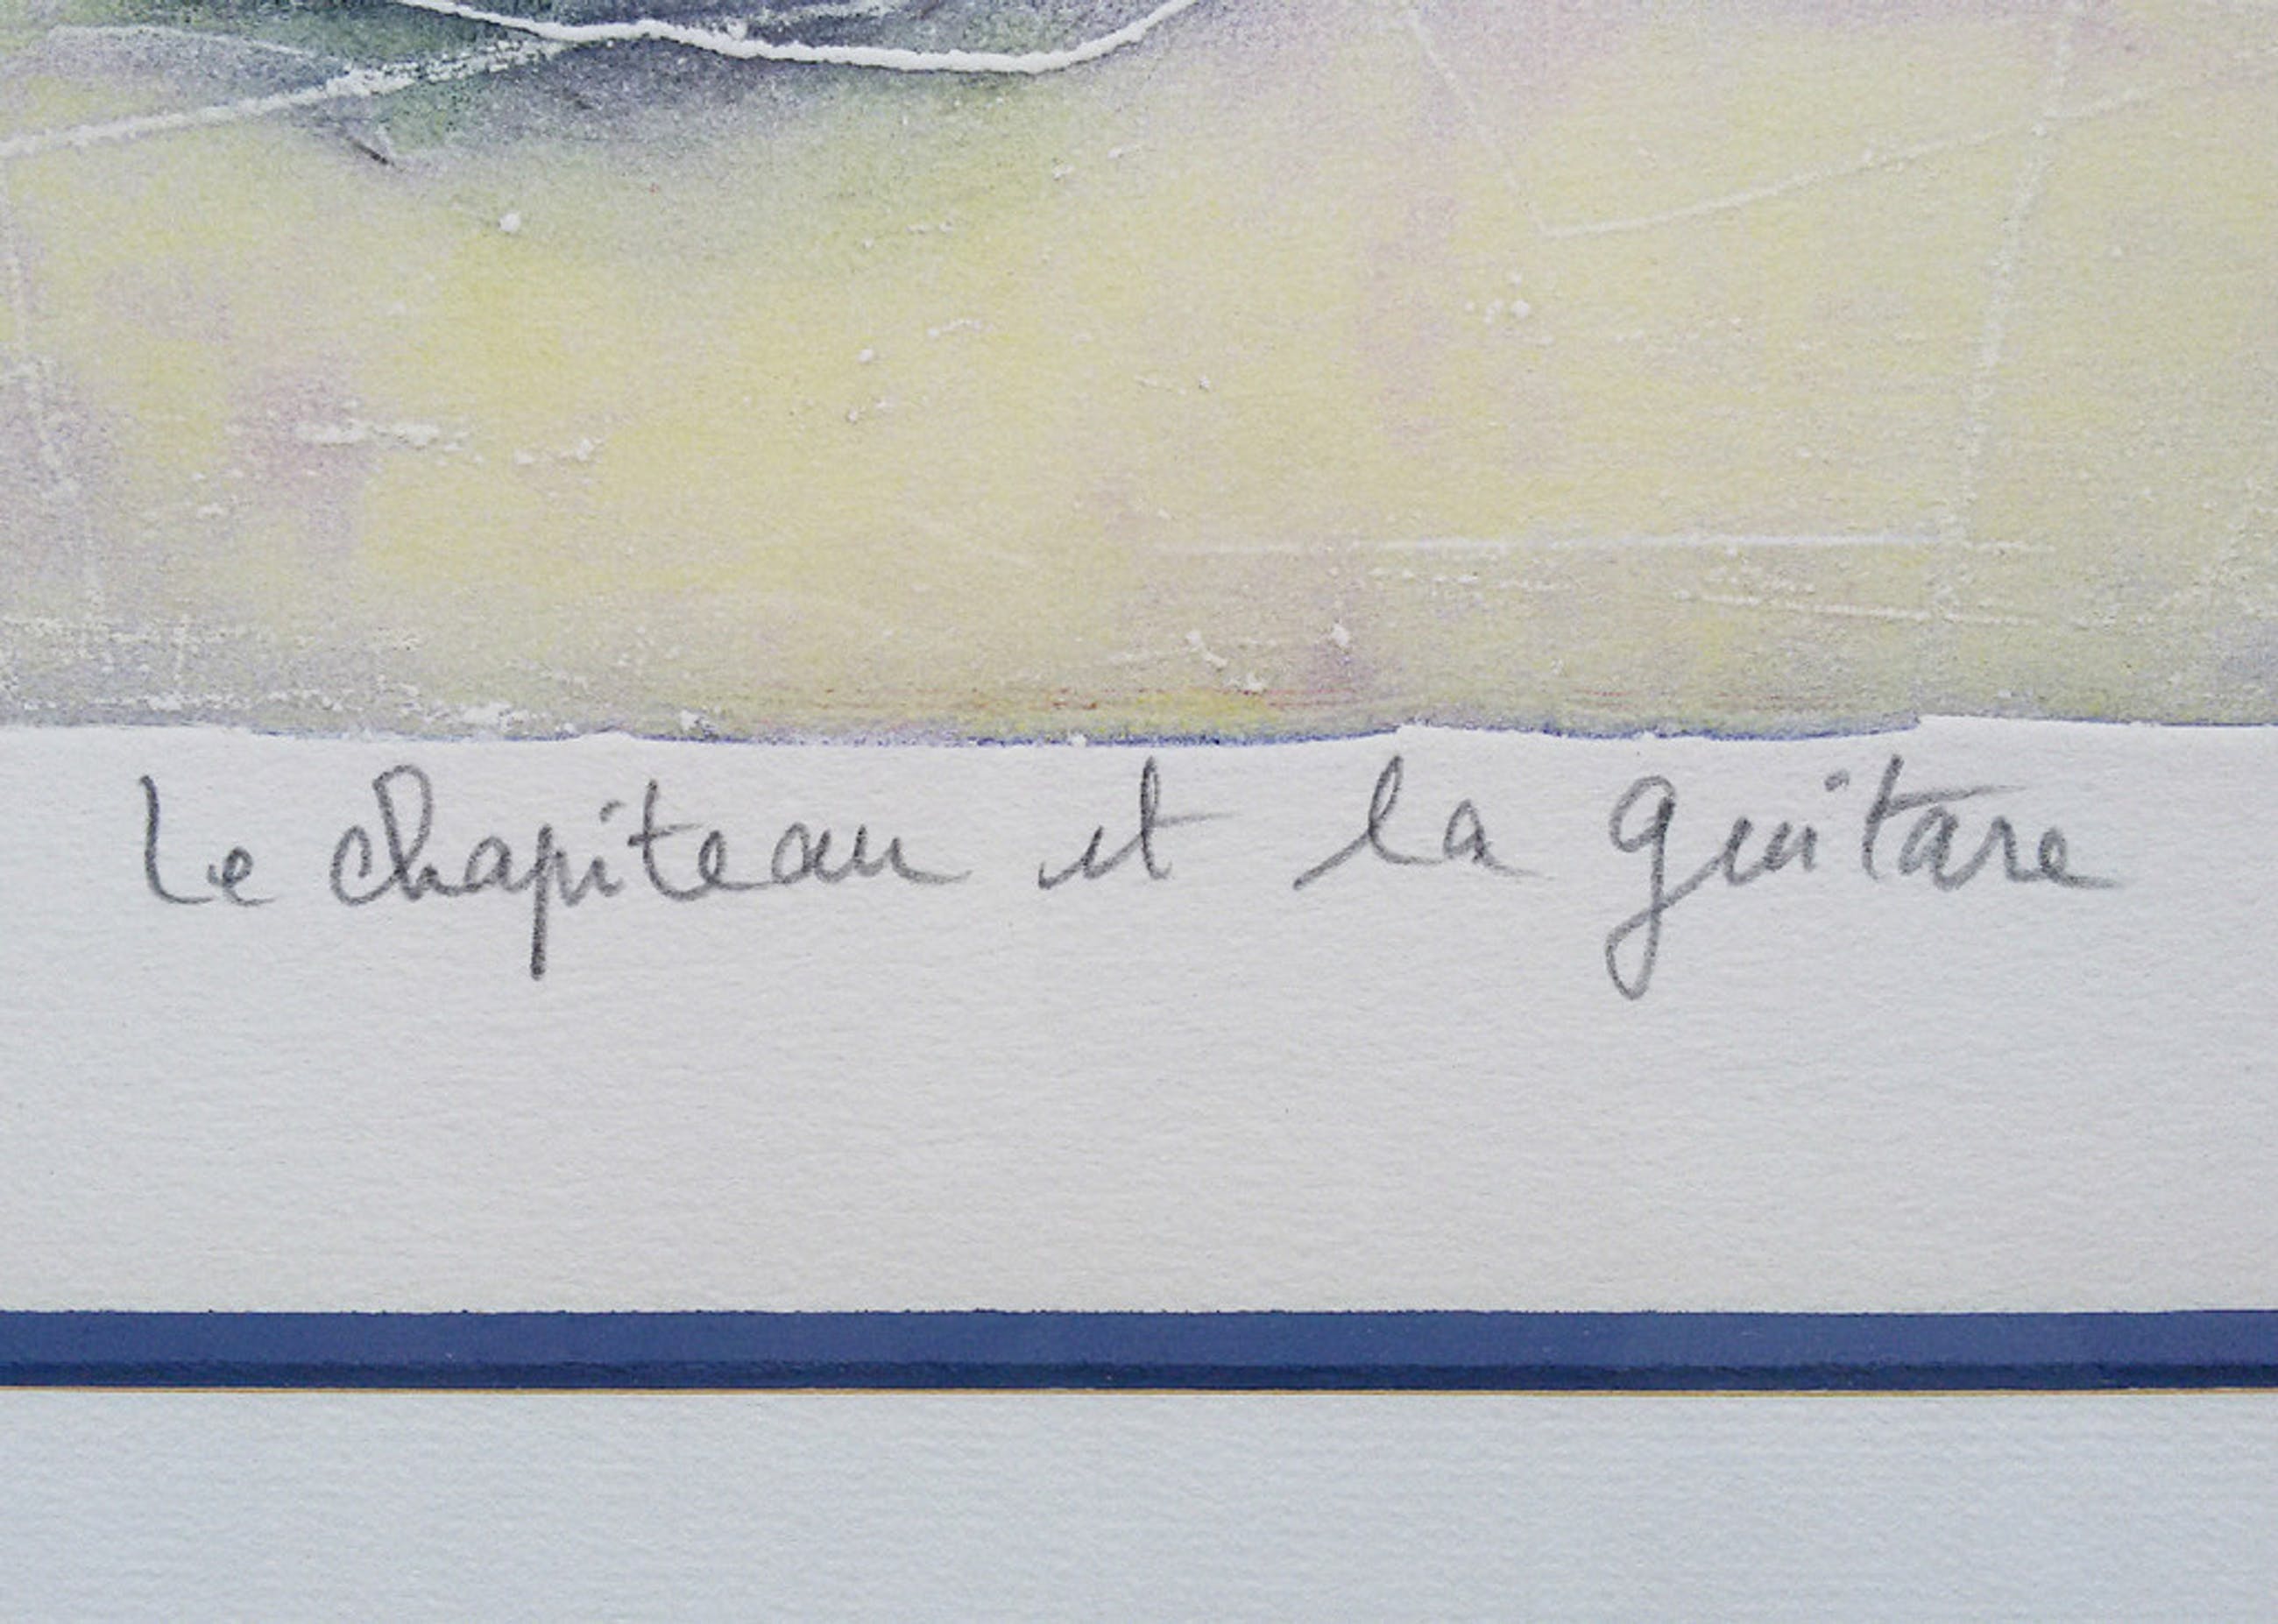 Le chapiteau et la guitare